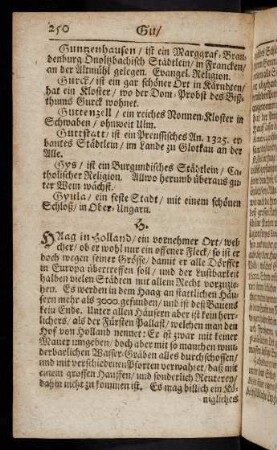 250 Gu/
Guntzenhausen / ist ein Marggraf-Bran-
denburg Onoltzbachisch Städtlein / in Francken /
an der Altmühl gelegen. Evangel. Religion.
Gurck / ist ein gar schöner Ort in Kärndten /
hat ein Kloster / wo der Dom-Probst des Biß-
thums Gurck wohnet.
Guttenzell / ein reiches Nonnen Kloster in
Schwaben / ohnweit Ulm.
Guttstatt / ist ein Preussisches An. 1325. er-
bautes Städtlein / im Lande zu Glottau an der
Alle.
Gys / ist ein Burgundisches Städtlein / Ca-
tholischer Religion. Allwo herumb überaus gu-
ter Wein wächst.
Gyula / ein feste Stadt / mit einem schönen
Schloß / in Ober-Ungarn.
H.
HAag in Holland / ein vornehmer Ort / wel-
cher / ob er wohl nur ein offener Fleck / so ist er
doch wegen seiner Grösse / damit er alle Dörffer
in Europa übertreffen soll / und der Lustbarkeit
halben vielen Städten mit allem Recht vorzuzie-
hen. Es werden in dem Haag an stattlichen Häu-
sern mehr als 3000. gefunden / und ist deß Bauens
kein Ende. Unter allen Häusern aber ist kein herr-
lichers / als der Fürsten Pallast / welchen man den
Hof von Holland nennet: Er ist zwar mit keiner
Mauer umgeben / doch aber mit so manchen wun-
derbarlichen Wasser-Gräben alles durchschossen /
und mit verschiedenen Pforten verwahret / daß mit
einem grossen Hauffen / und sonderlich Reuteren /
dahin nicht zu kommen ist. Es mag billich ein Kö-
nigliches